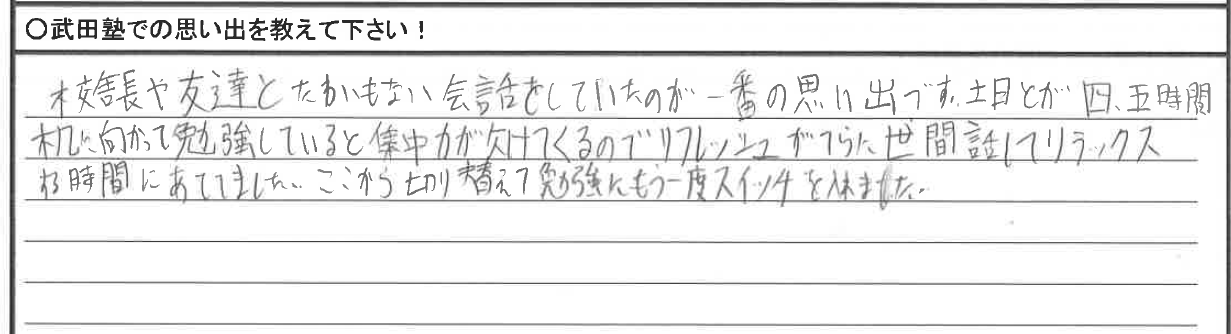 〇武田塾での思い出を教えて下さい！
校舎長や友達とたわいもない会話をしていたのが一番の思い出です。土日とか四、五時間
机に向かって勉強していると集中力が欠けてくるのでリフレッシュがてらに世間話してリラックス
する時間にあててました。ここから切り替えて勉強にもう一度スイッチを入れました。